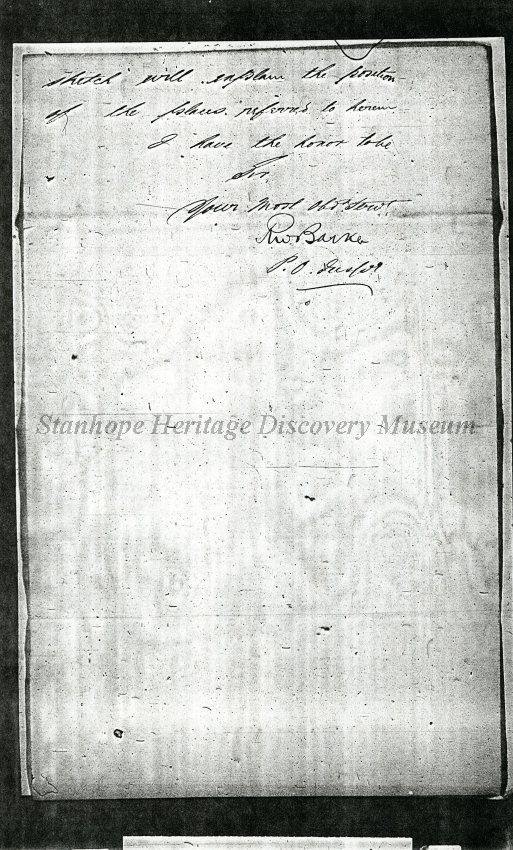 sketch will explain the position
of the places referred to herein
I have the honor to be
Sir
Your Most Obdt Servt
RW Barker
P.O. Inspr
Stanhope Heritage Discovery Museum